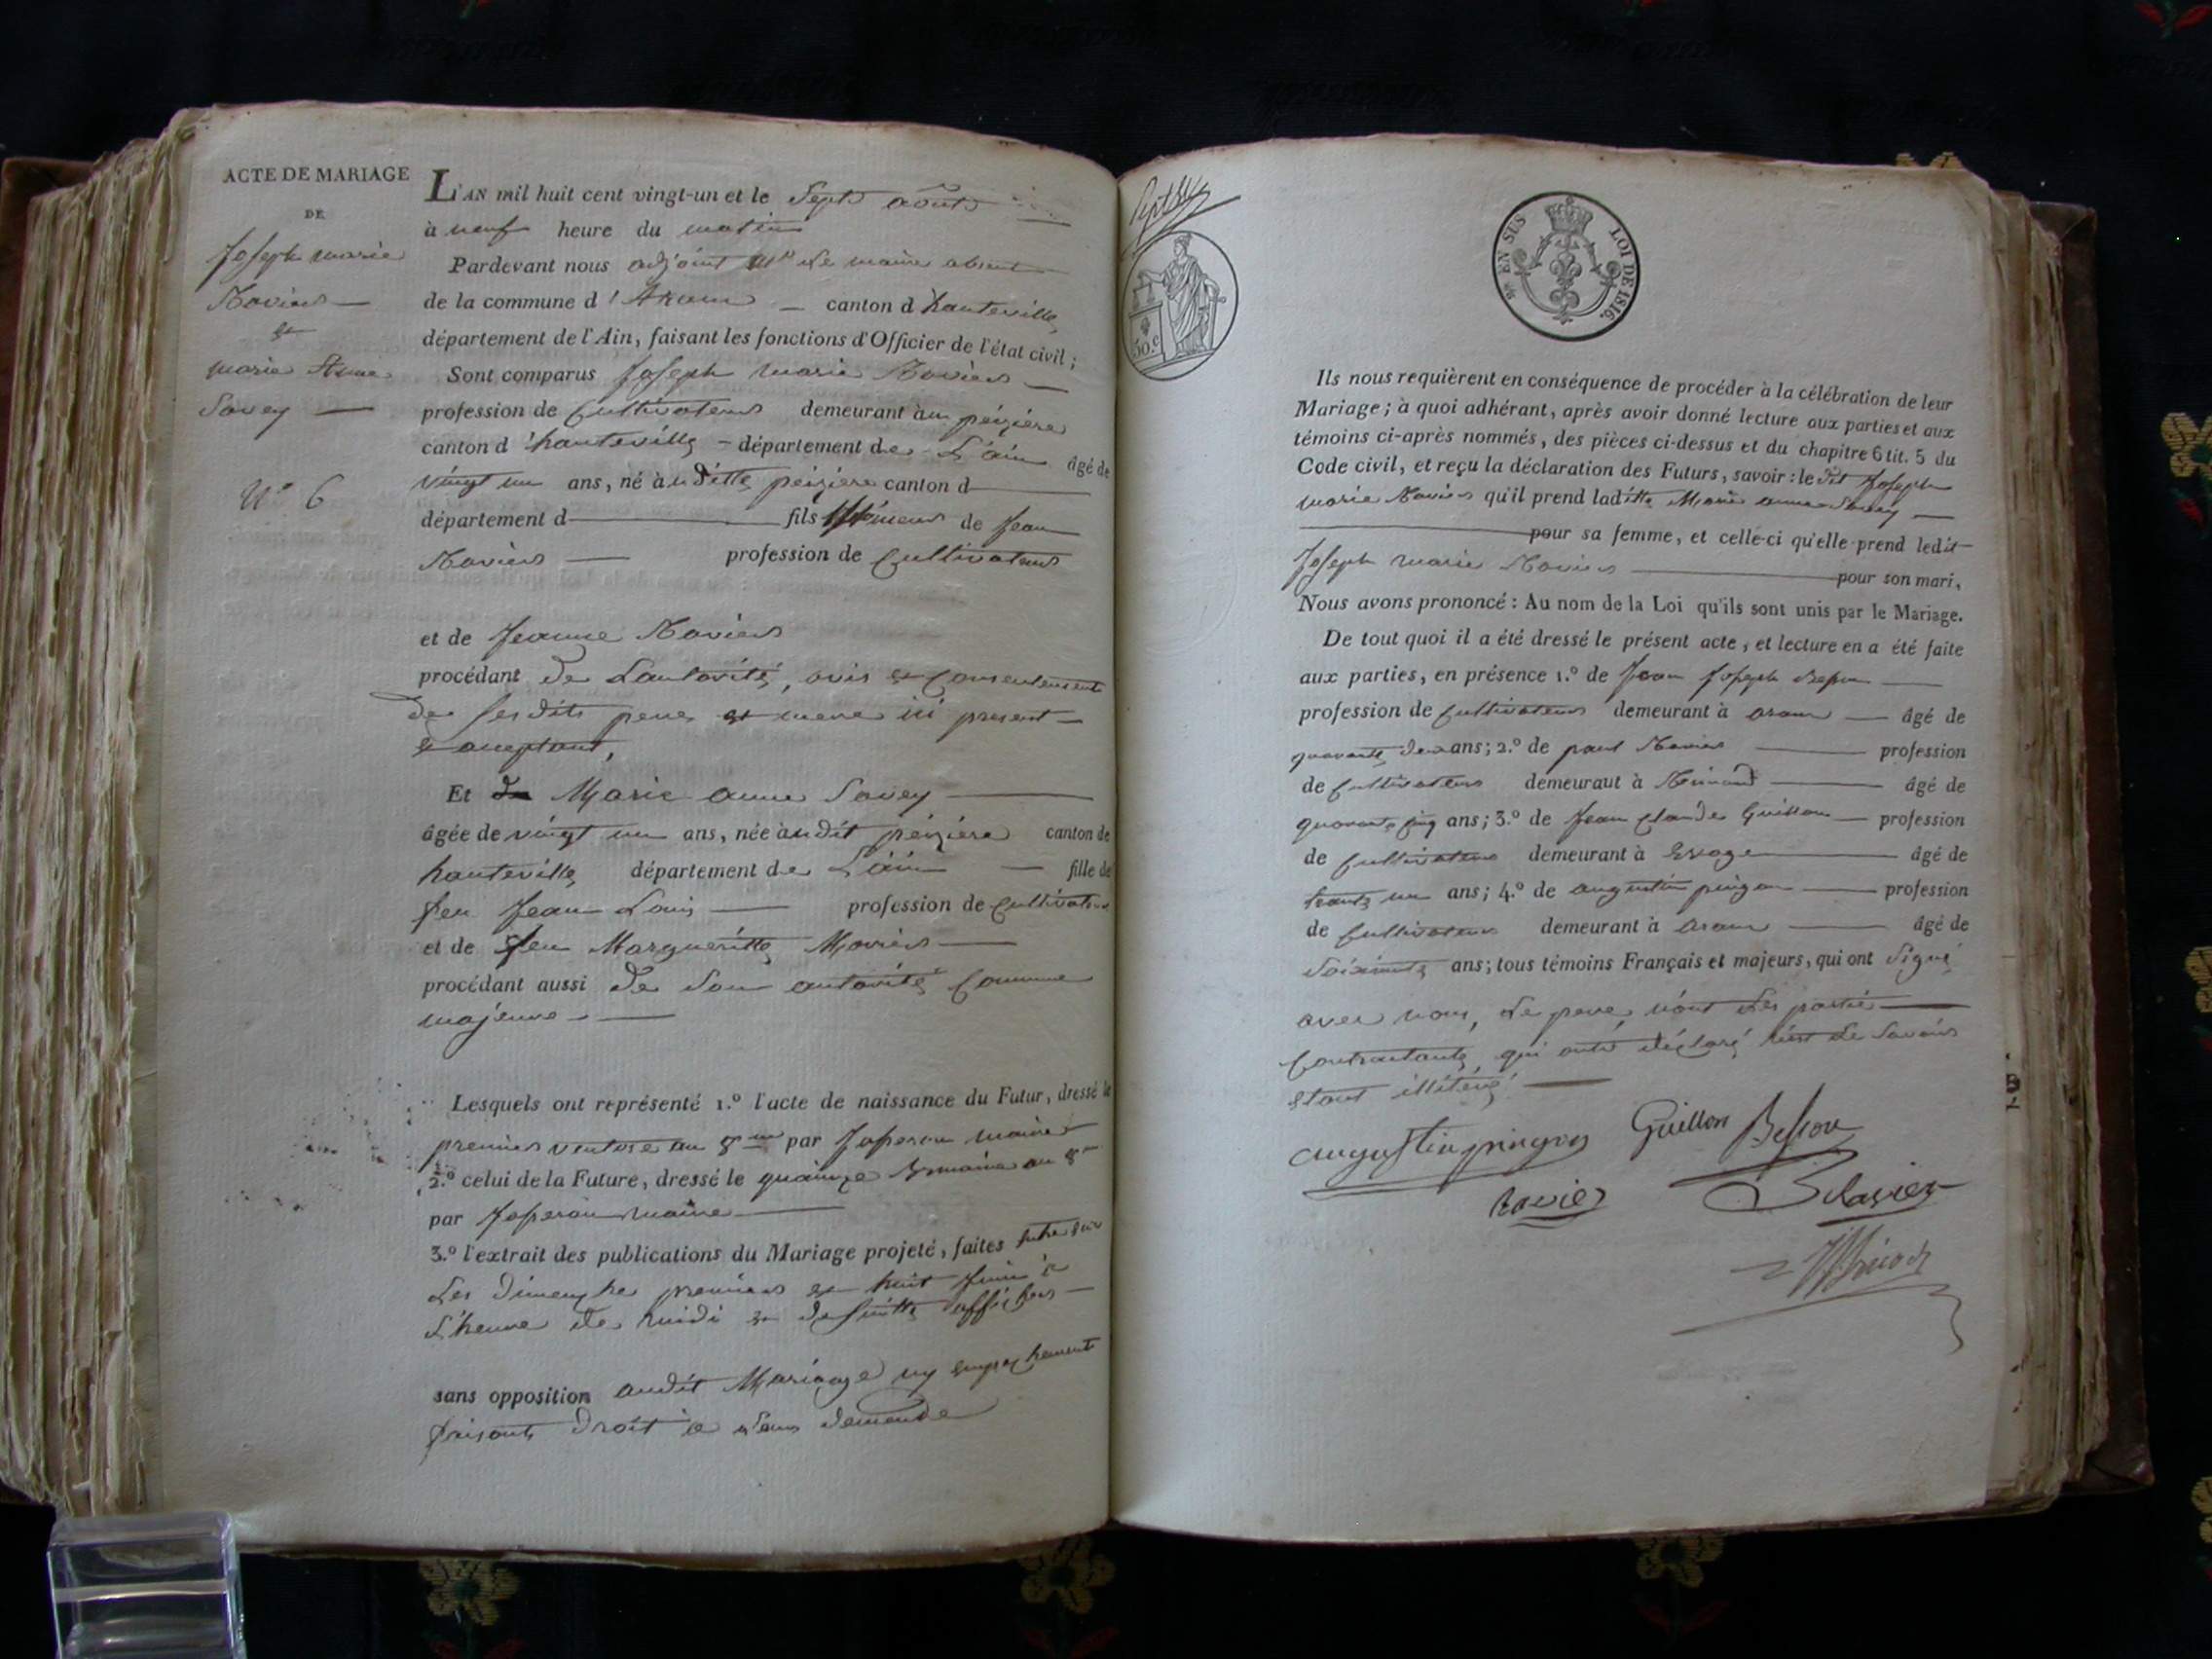 ACTE DE MARIAGE
DE
Joseph marie
Ravier
et
marie Anne
Savey
N.º 6
L'AN mil huit cent vingt-un et le Sept août
à neuf heure du matin
Pardevant nous adjoint Mr Le maire absent
de la commune d'Aranc canton d'hauteville
département de l'Ain, faisant les fonctions d'Officier de l'état civil;
Sont comparus Joseph marie Ravier
profession de Cultivateur demeurant à
canton d'hauteville département de L'ain âgé de
vingt un ans, né à canton d
département d fils mineur de Jean
Ravier profession de Cultivateur
et de Jeanne Ravier
procédant de Lautorité, avis et Consentement
de ses dits pere et mere ici present
et acceptant,
Et Marie anne Savey
âgée de vingt un ans, née audit canton de
hauteville département de L'ain fille de
feu Jean Louis profession de Cultivateur
et de feu Margueritte
procédant aussi de Son autorité Comme
majeure
Lesquels ont représenté 1.º l'acte de naissance du Futur, dressé le
premier ventose an 8me par maire
2.º celui de la Future, dressé le an 8me
par maire
3.º l'extrait des publications du Mariage projeté, faites
Les Dimenche premier et huit à
L'heure de midi et de Suitte affiches
sans opposition audit Mariage ny empechement
faisant Droit à Leur demande
50.c
EN SUS LOI DE 1816.
Ils nous requièrent en conséquence de procéder à la célébration de leur
Mariage; à quoi adhérant, après avoir donné lecture aux parties et aux
témoins ci-après nommés, des pièces ci-dessus et du chapitre 6 tit. 5 du
Code civil, et reçu la déclaration des Futurs, savoir: le dit Joseph
marie Ravier qu'il prend laditte Marie anne Savey
pour sa femme, et celle-ci qu'elle prend ledit
Joseph marie Ravier pour son mari,
Nous avons prononcé: Au nom de la Loi qu'ils sont unis par le Mariage.
De tout quoi il a été dressé le présent acte, et lecture en a été faite
aux parties, en présence 1.º de Jean Joseph
profession de Cultivateur demeurant à aranc âgé de
quarante deux ans; 2.º de paul Ravier profession
de Cultivateur demeurant à âgé de
quarante cinq ans; 3.º de Jean Claude Guillon profession
de Cultivateur demeurant à âgé de
trente un ans; 4.º de augustin pingon profession
de Cultivateur demeurant à aranc âgé de
Soixante ans; tous témoins Français et majeurs, qui ont Signé
avec nous, Le pere, non Les partie
Contractante qui ont déclaré ne Le Savoir
étant illitéré
augustin pingon Guillon Besson
Ravier Ravier